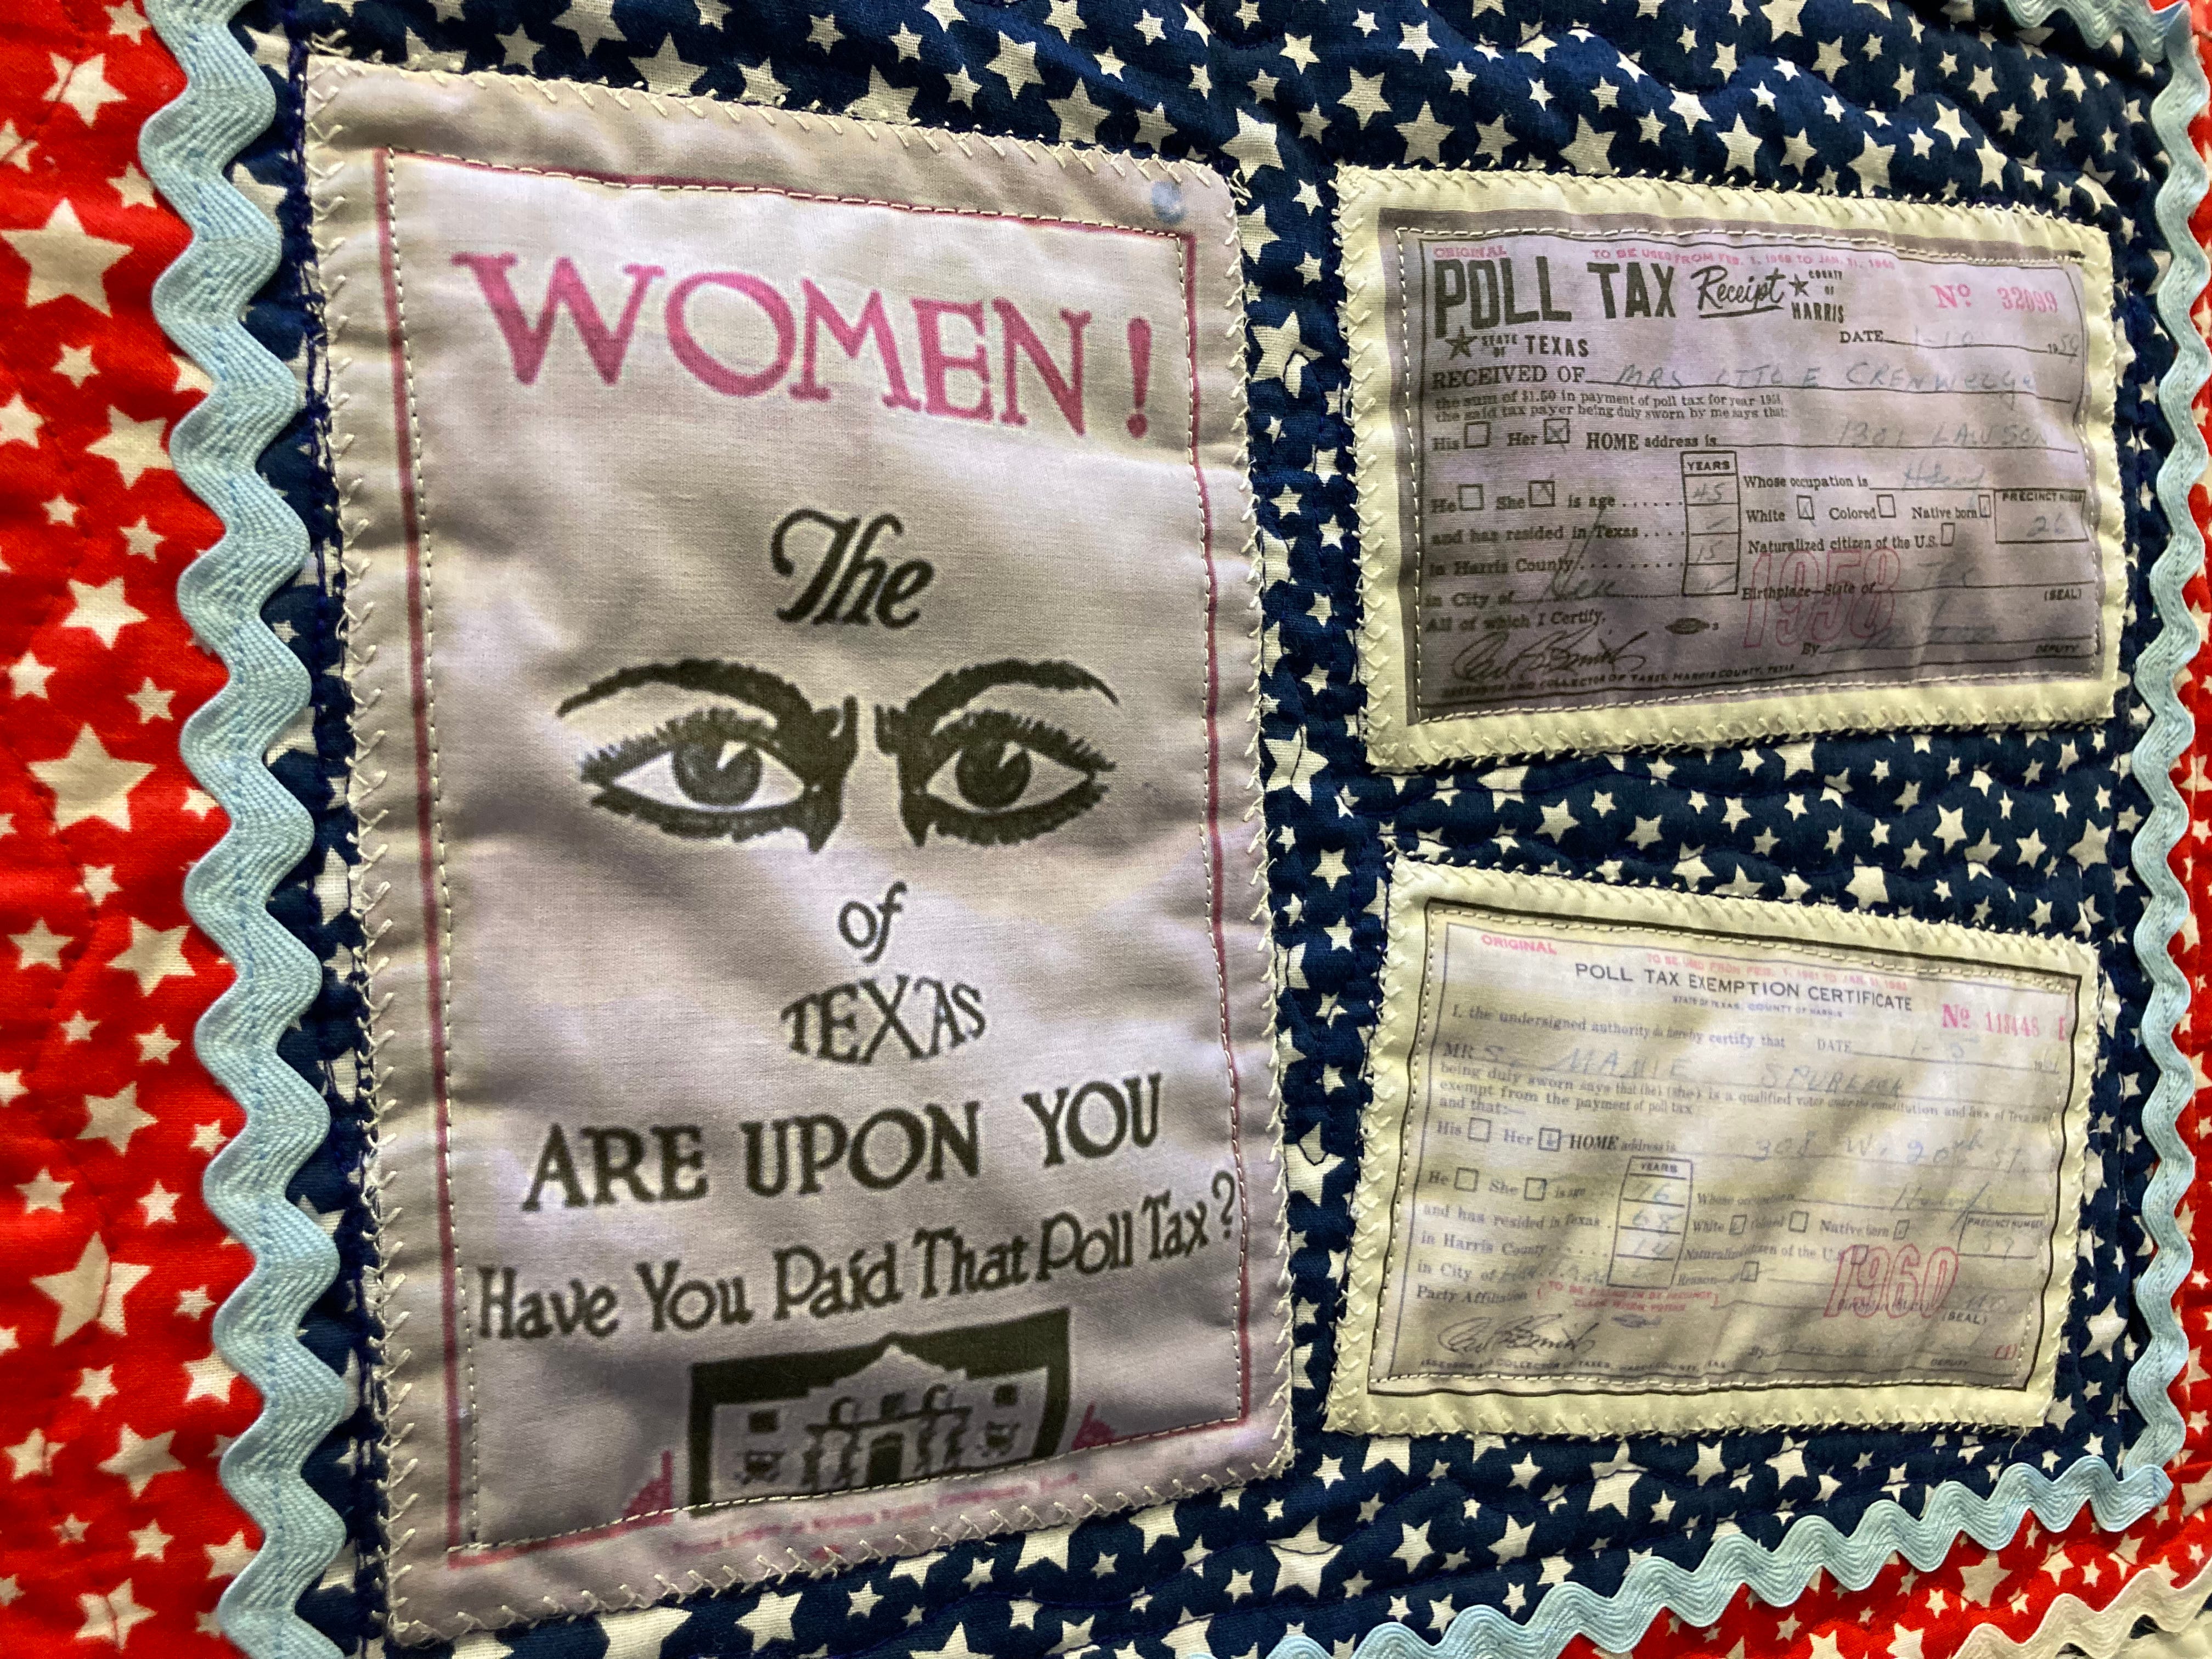 WOMEN!
The
of
TEXAS
ARE UPON YOU
Have You Paid That Poll Tax?
ORIGINAL
TO BE USED FROM FEB. 1,
POLL TAX Receipt
COUNTY
OF
HARRIS
No 32099
STATE OF TEXAS
DATE 1-10 19
RECEIVED OF MRS
the sum of $1.50 in payment of poll tax for year 1958,
the said tax payer being duly sworn by me says that:
His Her HOME address is 1301 LAWSON
YEARS
He She is age 45
Whose occupation is
and has resided in Texas
White Colored Native born
PRECINCT NUMBER
in Harris County 15
Naturalized citizen of the U.S.
in City of
1958
Birthplace—State of
(SEAL)
All of which I Certify.
By
DEPUTY
ASSESSOR AND COLLECTOR OF TAXES, HARRIS COUNTY, TEXAS
ORIGINAL
TO BE USED FROM FEB. 1, 1961 TO JAN. 31,
POLL TAX EXEMPTION CERTIFICATE
STATE OF TEXAS, COUNTY OF HARRIS
No
I, the undersigned authority do hereby certify that DATE 1-5
MRS. MAMIE
being duly sworn says that (he) (she) is a qualified voter under the constitution and laws of Texas
exempt from the payment of poll tax
and that:—
His Her HOME address is 301 W. 20th St
YEARS
He She is age 76
and has resided in Texas 68
White Colored Native born
PRECINCT NUMBER
in Harris County 14
Naturalized citizen of the U.S.
in City of
Reason
1960
Party Affiliation
(SEAL)
By
DEPUTY
ASSESSOR AND COLLECTOR OF TAXES, HARRIS COUNTY,